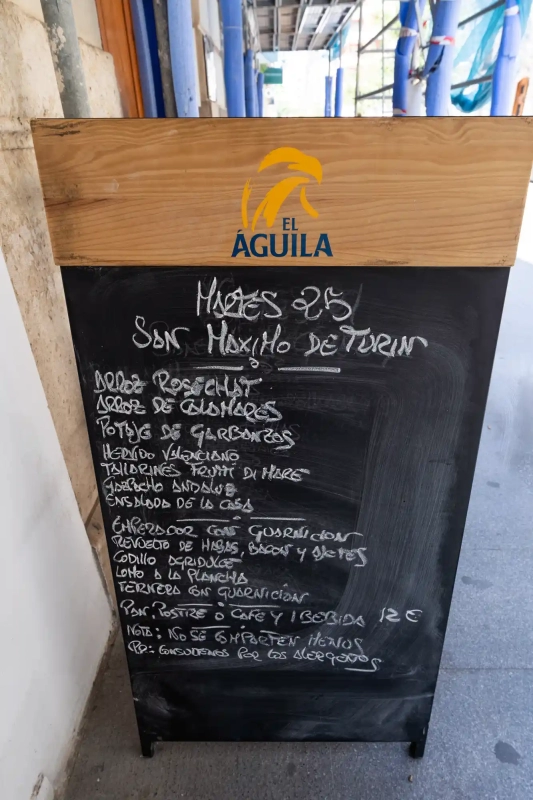 EL
ÁGUILA
MARTES 25
SAN MAXIMO DE TURIN
ARROZ ROSECHAT
ARROZ DE CALAMARES
POTAJE DE GARBANZOS
HERVIDO VALENCIANO
TALLARINES FRUTTI DI MARE
GAZPACHO ANDALUZ
ENSALADA DE LA CASA
EMPERADOR CON GUARNICION
REVUELTO DE HABAS, BACON Y AJETES
CODILLO AGRIDULCE
LOMO A LA PLANCHA
TERNERA CON GUARNICIÓN
PAN, POSTRE O CAFE Y 1 BEBIDA 12 €
NOTA: NO SE COMPARTEN MENUS
PD: CONSULTENOS POR LOS ALERGENOS